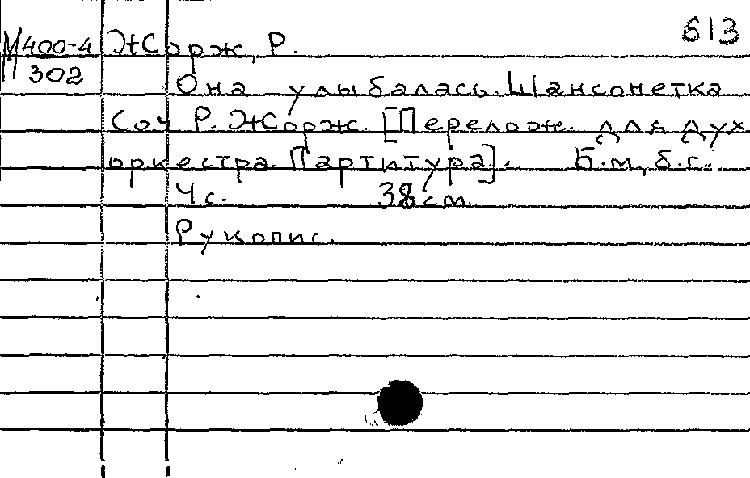 613
М400-4 Жорж, Р.
302
Она улыбалась. Шансонетка
Соч Р. Жорж. [Перелож. для дух
оркестра. Партитура]. Б.м., б.г.
4 с. 38 см.
Рукопис.